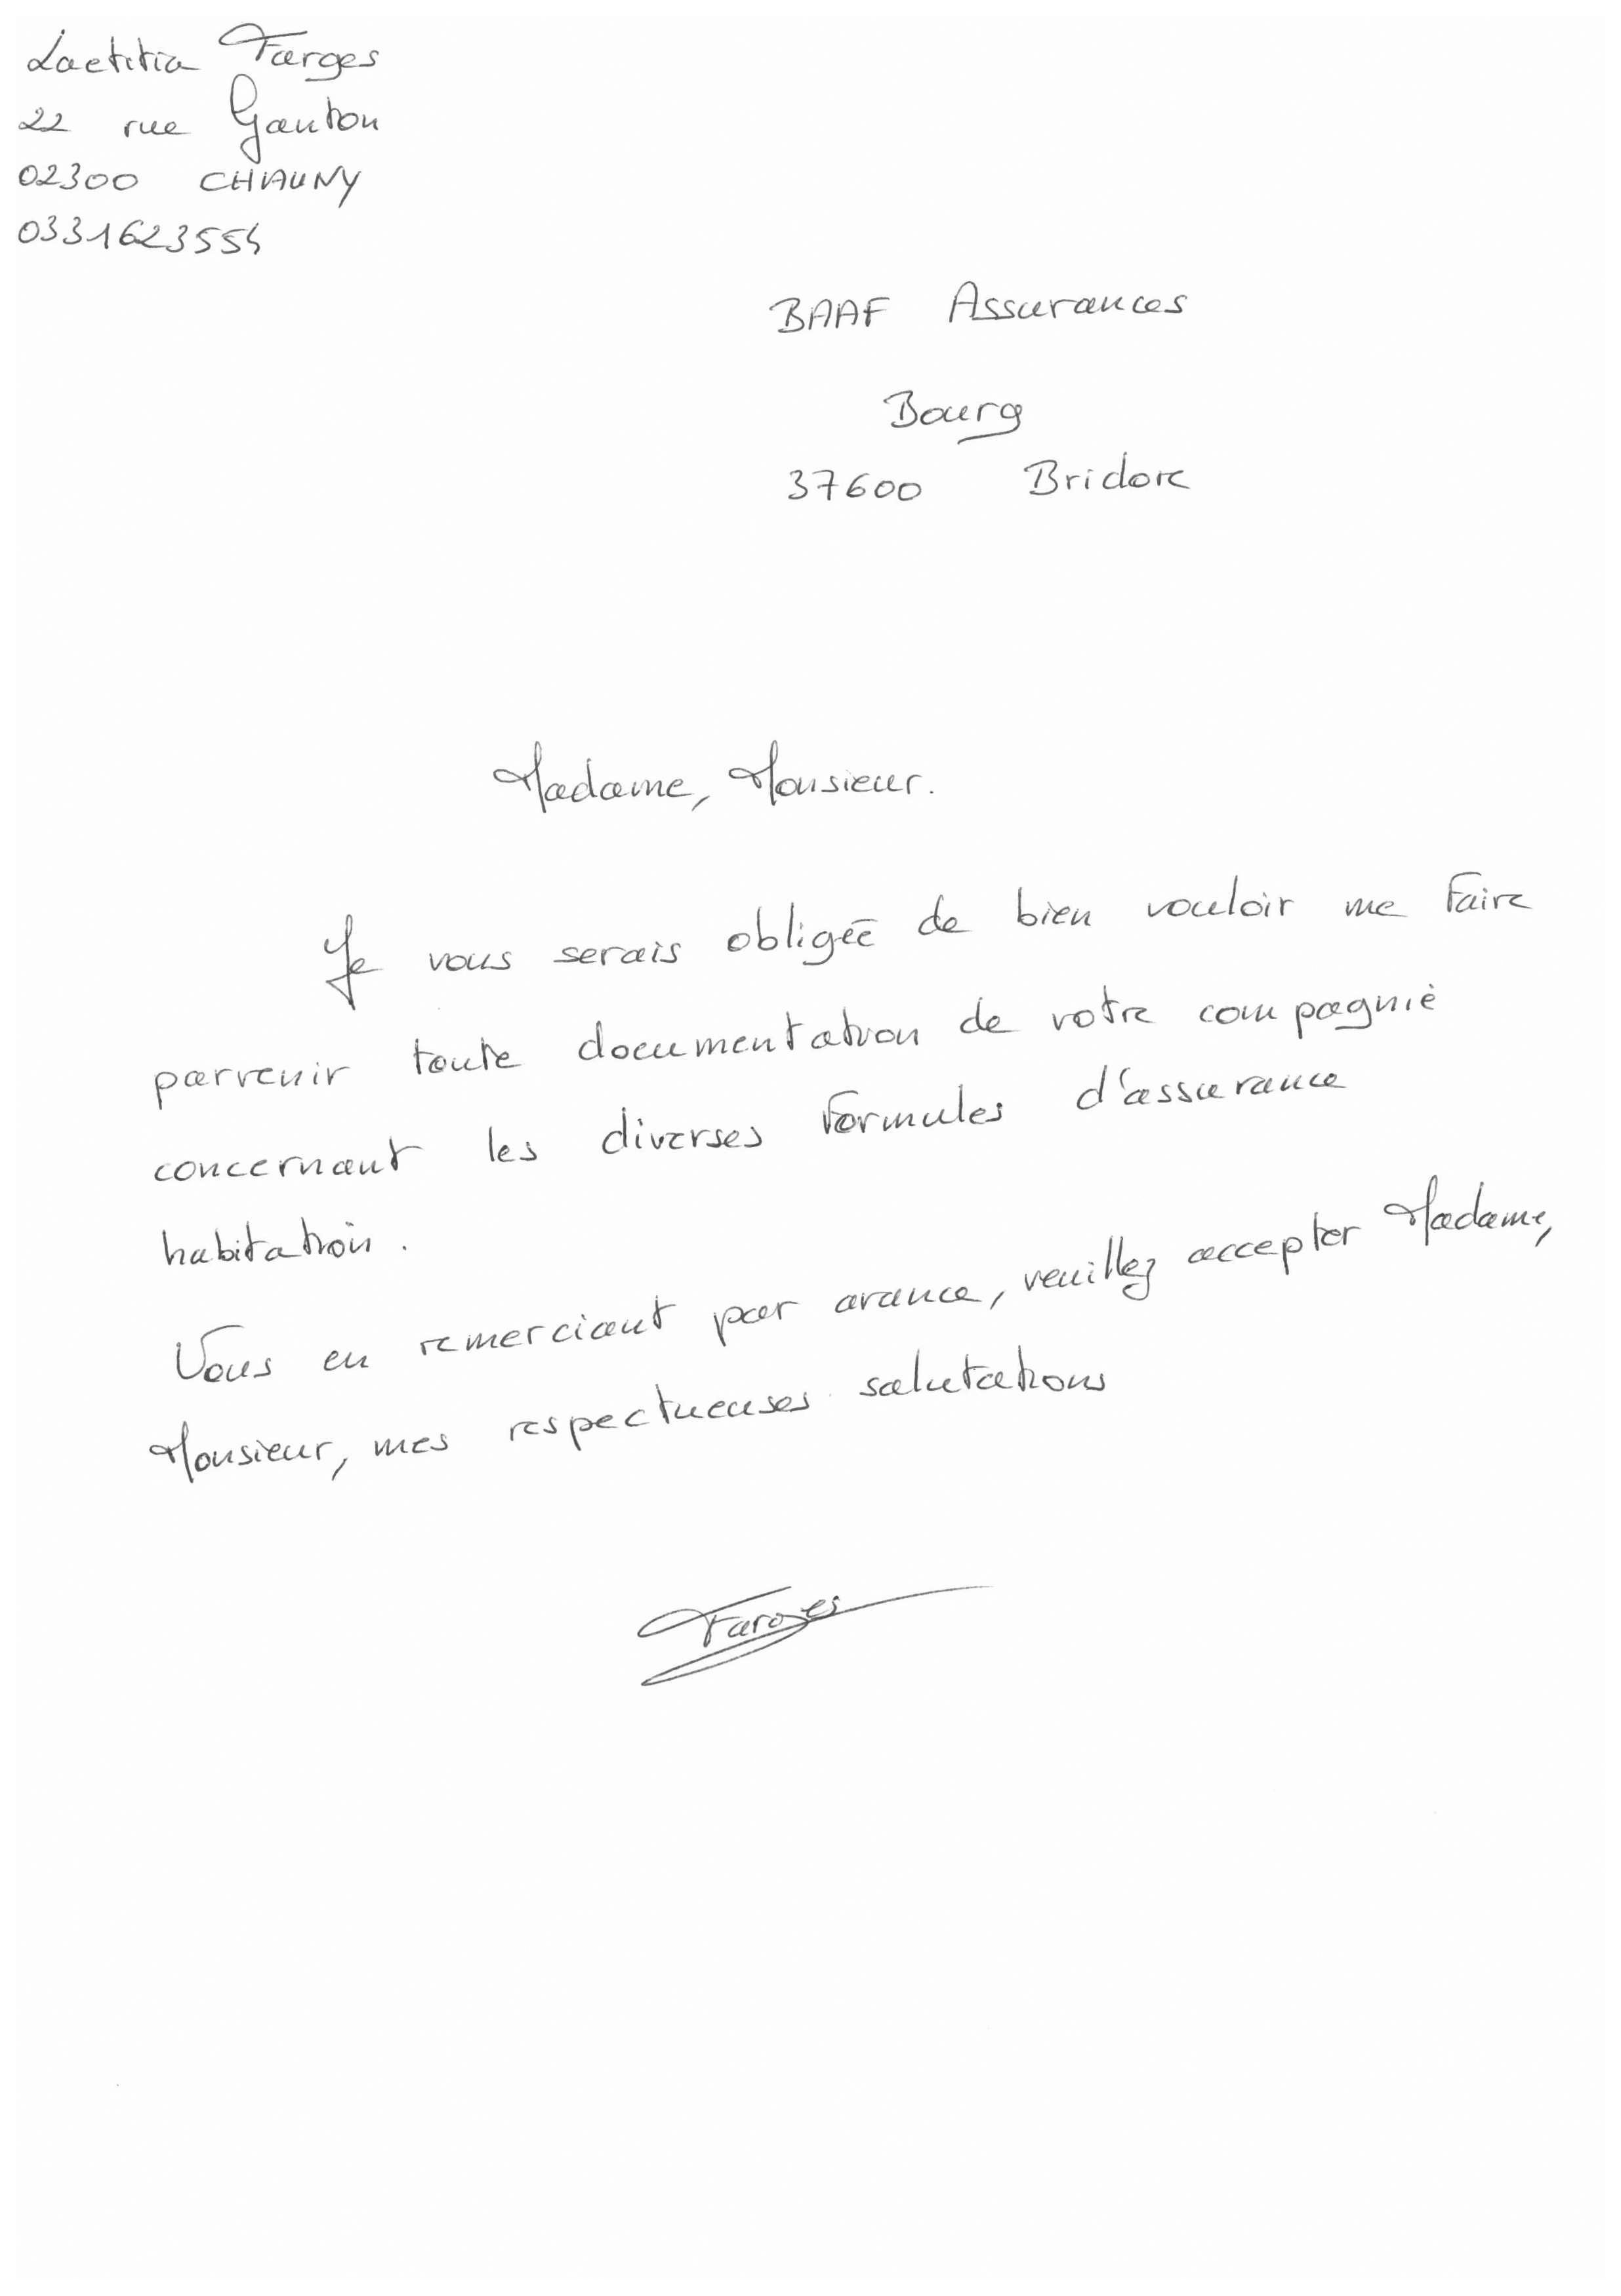 Laetitia Farges
22 rue Gauton
02300 CHAUNY
0331623554
BAAF Assurances
Bourg
37600 Bridore
Madame, Monsieur.
Je vous serais obligée de bien vouloir me faire
parvenir toute documentation de votre compagnie
concernant les diverses formules d'assurance
habitation.
Vous en remerciant par avance, veuillez accepter Madame,
Monsieur, mes respectueuses salutations
Farges